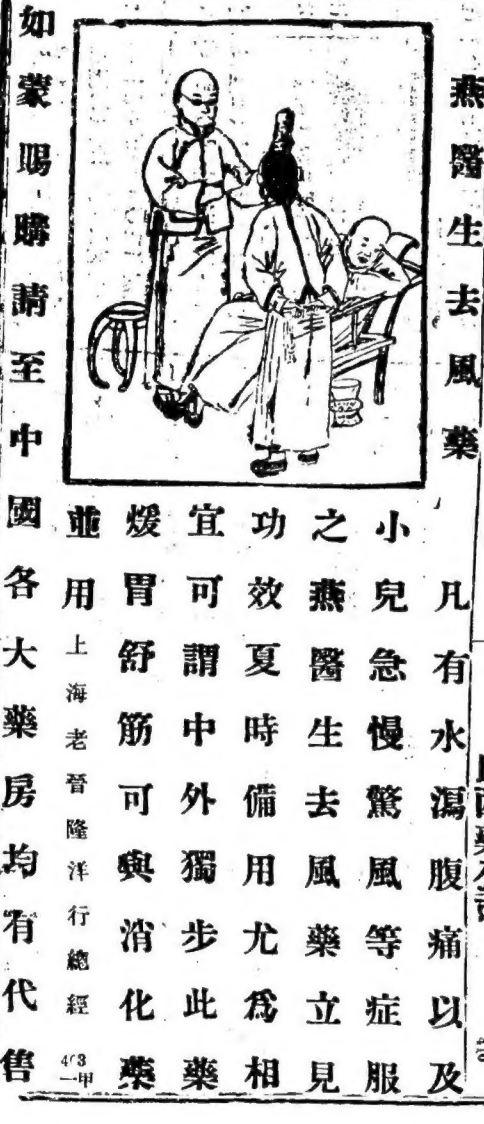 燕醫生去風藥
凡有水瀉腹痛以及
小兒急慢驚風等症服
之燕醫生去風藥立見
功效夏時備用尤爲相
宜可謂中外獨步此藥
煖胃舒筋可與消化藥
並用
上海老晉隆洋行總經
一甲
如蒙賜購請至中國各大藥房均有代售